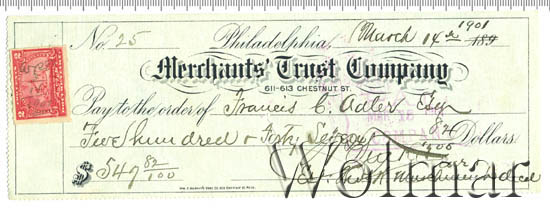 No. 25 Philadelphia, March 14th 1901 189
Merchants' Trust Company
611-613 CHESTNUT ST.
Pay to the order of Francis C. Adler Esq
Five hundred & Forty Seven 82/100 Dollars.
$ 547 82/100
Wolmar